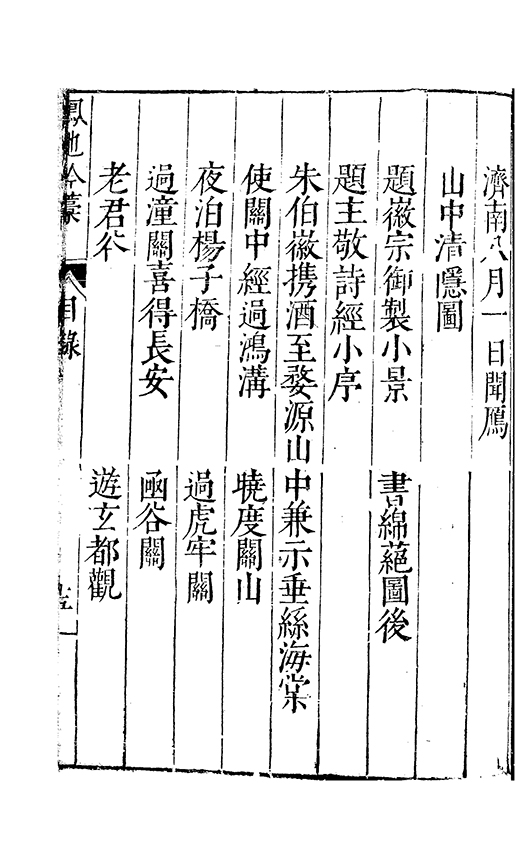 濟南八月一日聞鴈
山中清隱圖
題徽宗御製小景　書綿蕝圖後
題主敬詩經小序
朱伯徽携酒至婺源山中兼示垂絲海棠
使關中經過鴻溝　曉度關山
夜泊楊子橋　過虎牢關
過潼關喜得長安　函谷關
老君谷　遊玄都觀
目錄